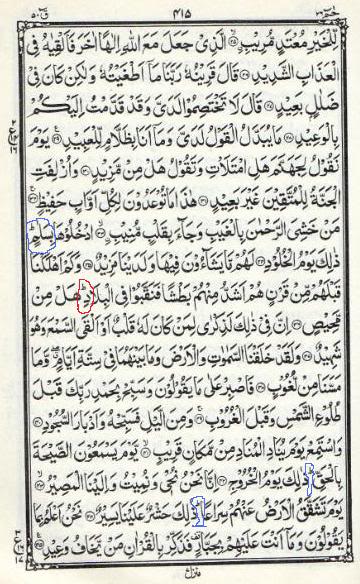 قٓ ٥٠ ٤١٥ حٰمٓ ٢٦
لِّلۡخَيۡرِ مُعۡتَدٍ مُّرِيۡبِ ۙ﴿۲۵﴾ الَّذِىۡ جَعَلَ مَعَ اللّٰهِ اِلٰهًا اٰخَرَ فَاَلۡقِيٰهُ فِى
الۡعَذَابِ الشَّدِيۡدِ ﴿۲۶﴾ قَالَ قَرِيۡنُهٗ رَبَّنَا مَاۤ اَطۡغَيۡتُهٗ وَلٰكِنۡ كَانَ فِىۡ
ضَلٰلٍۢ بَعِيۡدٍ ﴿۲۷﴾ قَالَ لَا تَخۡتَصِمُوۡا لَدَىَّ وَقَدۡ قَدَّمۡتُ اِلَيۡكُمۡ
بِالۡوَعِيۡدِ ﴿۲۸﴾ مَا يُبَدَّلُ الۡقَوۡلُ لَدَىَّ وَمَاۤ اَنَا بِظَلَّامٍ لِّلۡعَبِيۡدِ ﴿۲۹﴾ يَوۡمَ
نَقُوۡلُ لِجَهَنَّمَ هَلِ امۡتَلَاۡتِ وَتَقُوۡلُ هَلۡ مِنۡ مَّزِيۡدٍ ﴿۳۰﴾ وَاُزۡلِفَتِ
الۡجَنَّةُ لِلۡمُتَّقِيۡنَ غَيۡرَ بَعِيۡدٍ ﴿۳۱﴾ هٰذَا مَا تُوۡعَدُوۡنَ لِكُلِّ اَوَّابٍ حَفِيۡظٍ ۚ﴿۳۲﴾
مَنۡ خَشِىَ الرَّحۡمٰنَ بِالۡغَيۡبِ وَجَآءَ بِقَلۡبٍ مُّنِيۡبِ ۙ﴿۳۳﴾ اۨدۡخُلُوۡهَا بِسَلٰمٍ ؕ
ذٰلِكَ يَوۡمُ الۡخُلُوۡدِ ﴿۳۴﴾ لَهُمۡ مَّا يَشَآءُوۡنَ فِيۡهَا وَلَدَيۡنَا مَزِيۡدٌ ﴿۳۵﴾ وَكَمۡ اَهۡلَكۡنَا
قَبۡلَهُمۡ مِّنۡ قَرۡنٍ هُمۡ اَشَدُّ مِنۡهُمۡ بَطۡشًا فَنَقَّبُوۡا فِى الۡبِلَادِ ؕ هَلۡ مِنۡ
مَّحِيۡصٍ ﴿۳۶﴾ اِنَّ فِىۡ ذٰلِكَ لَذِكۡرٰى لِمَنۡ كَانَ لَهٗ قَلۡبٌ اَوۡ اَلۡقَى السَّمۡعَ وَهُوَ
شَهِيۡدٌ ﴿۳۷﴾ وَلَقَدۡ خَلَقۡنَا السَّمٰوٰتِ وَالۡاَرۡضَ وَمَا بَيۡنَهُمَا فِىۡ سِتَّةِ اَيَّامٍ ۖ وَّمَا
مَسَّنَا مِنۡ لُّغُوۡبٍ ﴿۳۸﴾ فَاصۡبِرۡ عَلٰى مَا يَقُوۡلُوۡنَ وَسَبِّحۡ بِحَمۡدِ رَبِّكَ قَبۡلَ
طُلُوۡعِ الشَّمۡسِ وَقَبۡلَ الۡغُرُوۡبِ ۚ﴿۳۹﴾ وَمِنَ الَّيۡلِ فَسَبِّحۡهُ وَاَدۡبَارَ السُّجُوۡدِ ﴿۴۰﴾
وَاسۡتَمِعۡ يَوۡمَ يُنَادِ الۡمُنَادِ مِنۡ مَّكَانٍ قَرِيۡبٍ ۙ﴿۴۱﴾ يَّوۡمَ يَسۡمَعُوۡنَ الصَّيۡحَةَ
بِالۡحَـقِّ ؕ ذٰلِكَ يَوۡمُ الۡخُرُوۡجِ ﴿۴۲﴾ اِنَّا نَحۡنُ نُحۡىٖ وَنُمِيۡتُ وَاِلَيۡنَا الۡمَصِيۡرُ ۙ﴿۴۳﴾
يَوۡمَ تَشَقَّقُ الۡاَرۡضُ عَنۡهُمۡ سِرَاعًا ؕ ذٰلِكَ حَشۡرٌ عَلَيۡنَا يَسِيۡرٌ ﴿۴۴﴾ نَحۡنُ اَعۡلَمُ بِمَا
يَقُوۡلُوۡنَ وَمَاۤ اَنۡتَ عَلَيۡهِمۡ بِجَـبَّارٍ ۗ فَذَكِّرۡ بِالۡقُرۡاٰنِ مَنۡ يَّخَافُ وَعِيۡدِ ﴿۴۵﴾